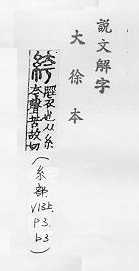 說文解字
大徐本
絝
脛衣也从糸
夸聲苦故切
(糸部
V13上
P3.
b3)